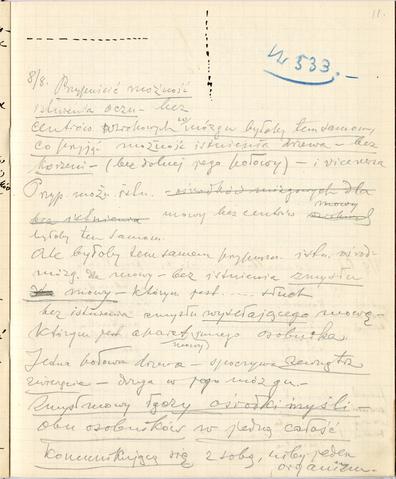 11.
N 533. –
8/8. Przypuścić możność
istnienia oczu – bez
centrów wzrokowych w mózgu byłoby tem samem
co przyjąć możność istnienia drzewa – bez
korzeni – (bez dolnej jego połowy) – i vice versa
Przyp. możn. istn. – ośrodków mózgowych dla
bez istnienia mowy bez centrów mowy
byłoby tem samem.
Ale byłoby tem samem przypuszcz. istn. ośrod.
mózg. dla mowy – bez istnienia zmysłu
mowy – którym jest ...... słuch
bez istnienia zmysłu wysyłającego mowę –
którym jest aparat mowy osobnika
Jedna połowa drzewa – spoczywa zewnątrz
zwierzęcia – druga w jego mózgu.
Zmysł mowy łączy ośrodki myśli –
obu osobników w jedną całość
komunikującą się z sobą, niby jeden
organizm.